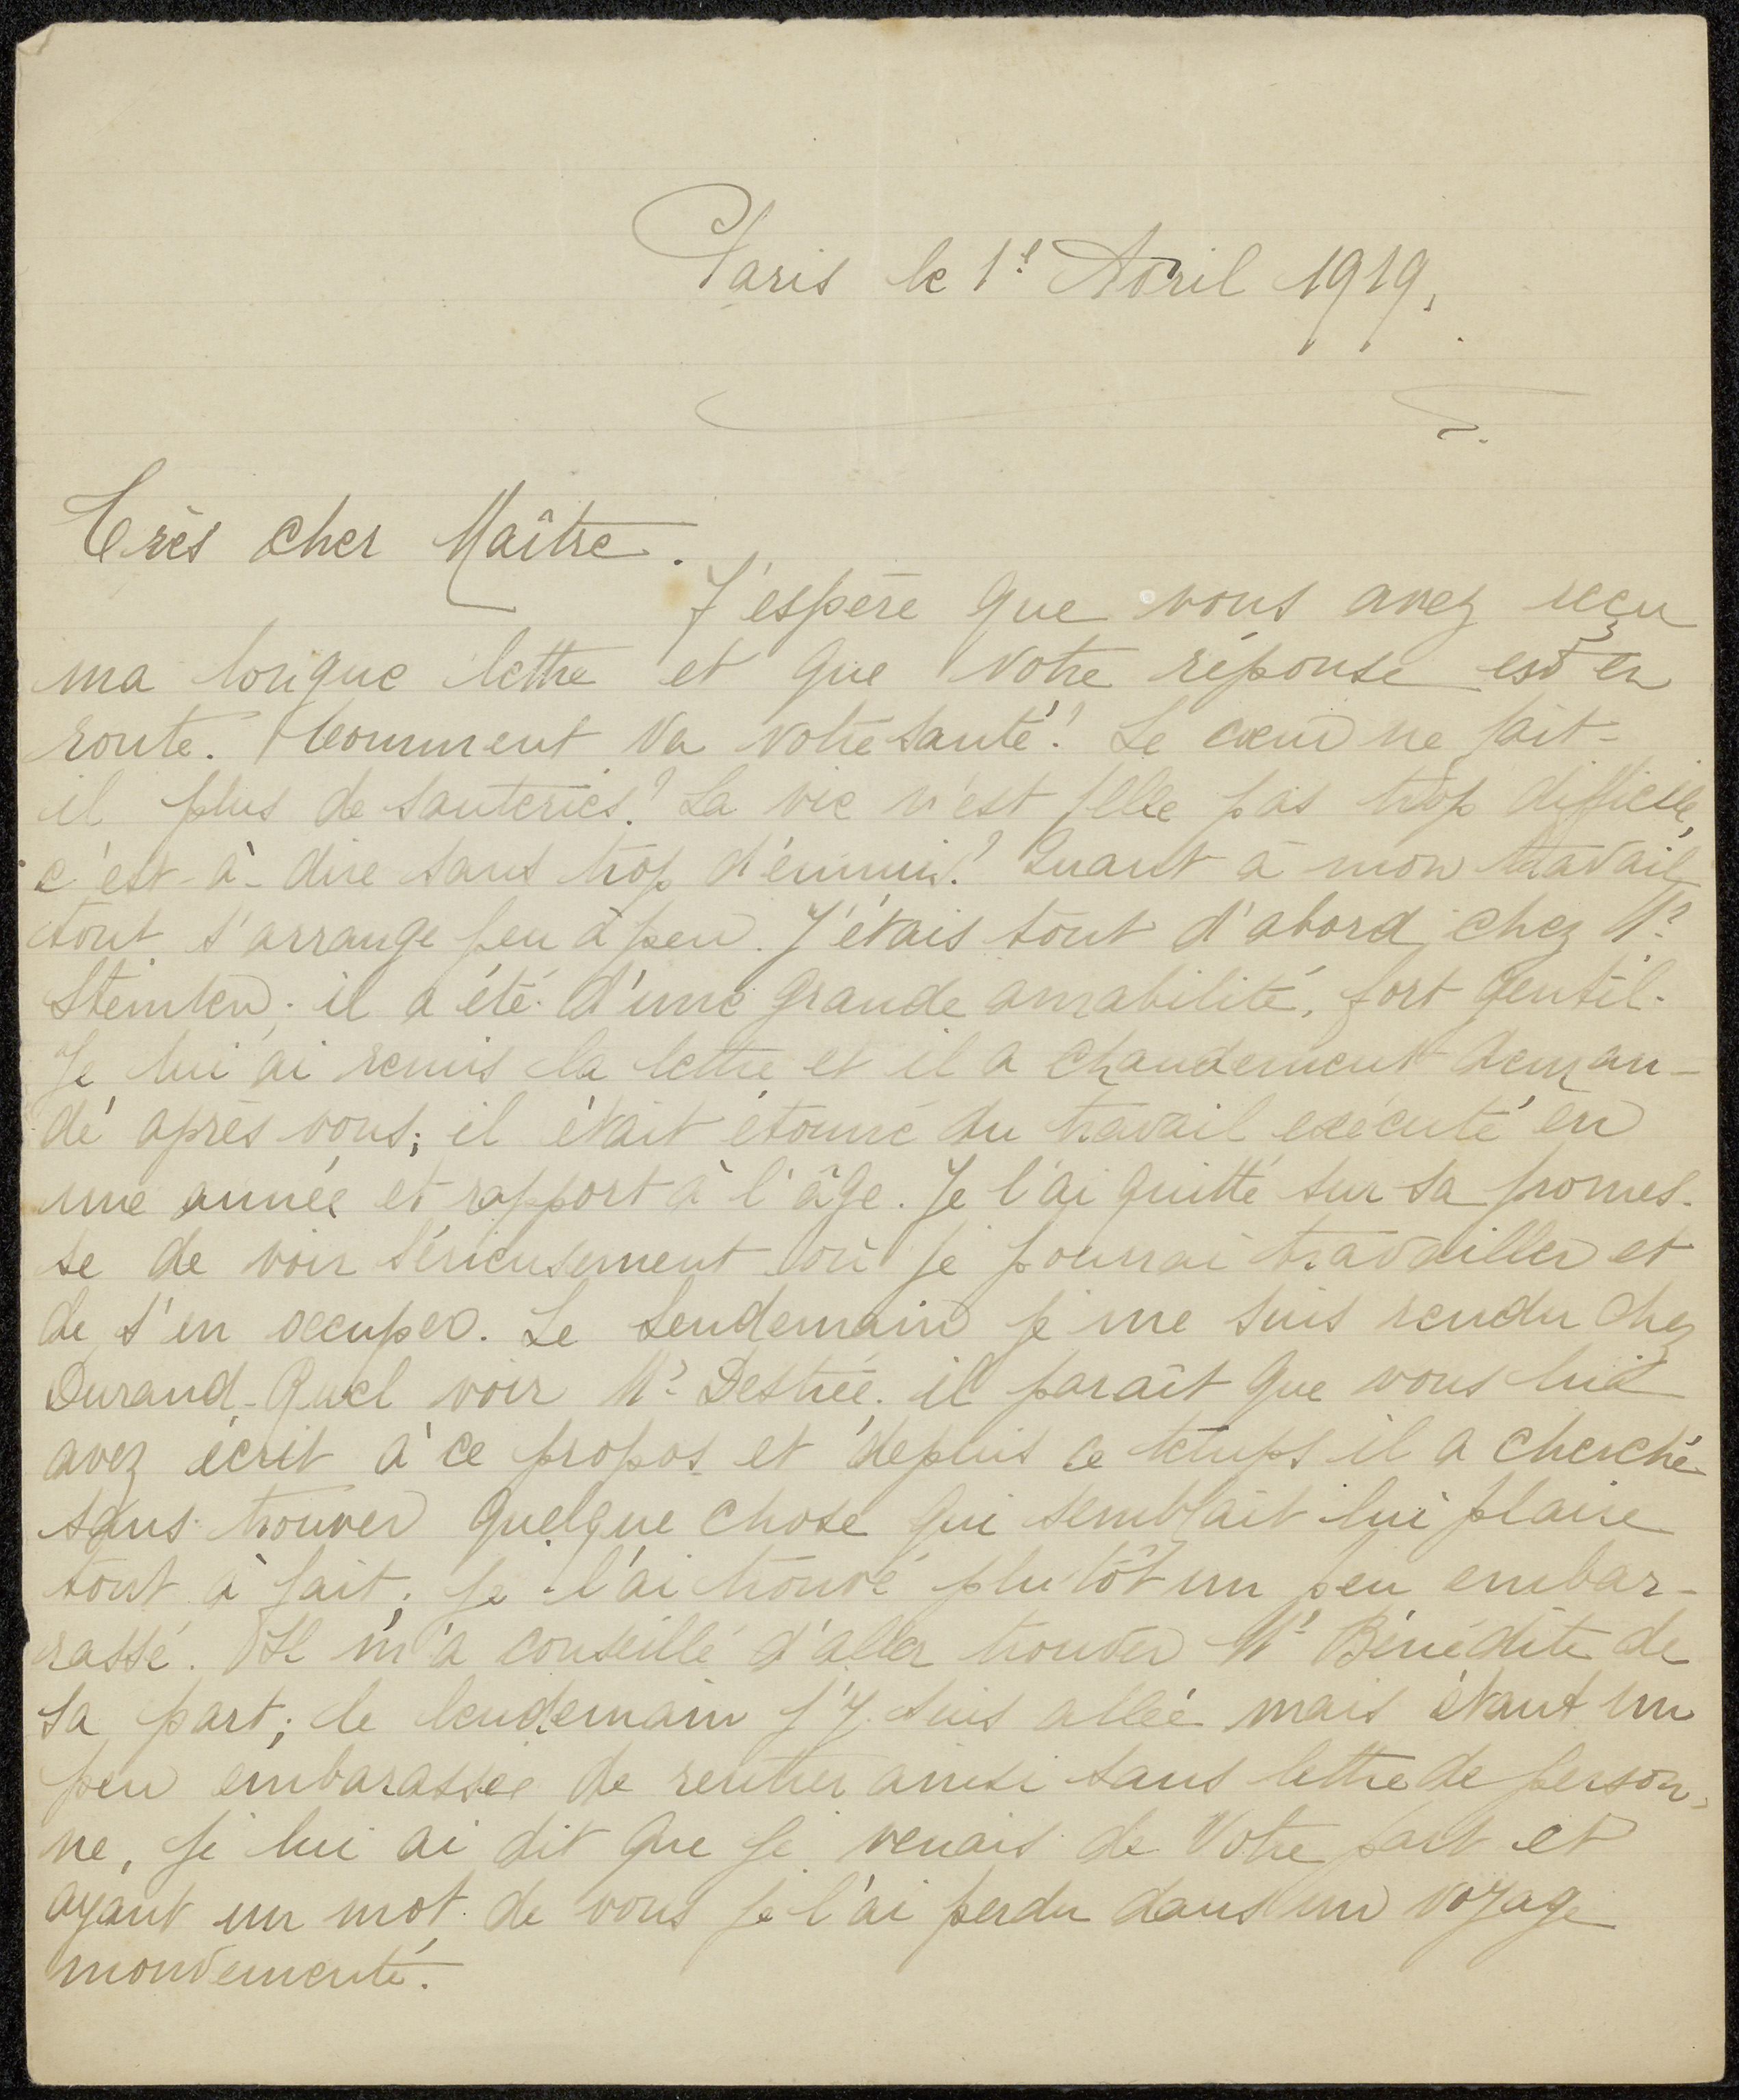 Paris le 1e Avril 1919.
Très cher Maître.
J'espère que vous avez reçu
ma longue lettre et que votre réponse est en
route. Comment va votre santé? Le cœur ne fait-
il plus de sauteries? La vie n'est elle pas trop difficile,
c'est-à-dire sans trop d'ennuis? Quant à mon travail
tout s'arrange peu à peu. J'étais tout d'abord chez Mr
Steinlen; il a été d'une grande amabilité, fort gentil.
Je lui ai remis la lettre et il a chaudement deman-
dé après vous; il était étonné du travail exécuté en
une année et rapport à l'âge. Je l'ai quitté sur sa promes-
se de voir sérieusement où je pourrai travailler et
de s'en occuper. Le lendemain je me suis rendu chez
Durand-Ruel voir Mr Destrée. il paraît que vous lui
avez écrit à ce propos et depuis ce temps il a cherché
sans trouver quelque chose qui semblait lui plaire
tout à fait; je l'ai trouvé plutôt un peu embar-
rassé. Il m'a conseillé d'aller trouver Mr Bénédite de
sa part; le lendemain j'y suis allée mais étant un
peu embarassée de rentrer ainsi sans lettre de person-
ne, je lui ai dit que je venais de Votre part et
ayant un mot de vous je l'ai perdu dans un voyage
mouvementé.